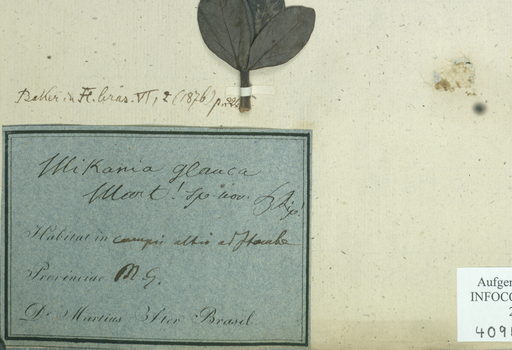 Baker in Fl. bras. VI, 2 (1876) p.
Mikania glauca
Mart! Sp. nov.
Habitat in campis altis ad
Provinciae M. G.
Dr Martius Iter Brasil
Aufgen
INFOCO
2
409